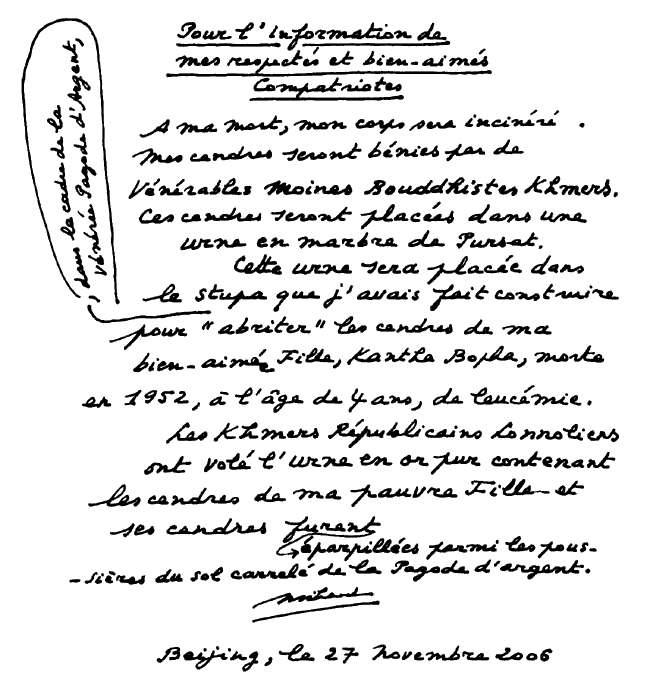 Pour l'information de
mes respectés et bien-aimés
Compatriotes
A ma mort, mon corps sera incinéré.
Mes cendres seront bénies par de
Vénérables Moines Bouddhistes Khmers.
Ces cendres seront placées dans une
urne en marbre de Pursat.
Cette urne sera placée dans
le stupa que j'avais fait construire
, dans le cadre de la
Vénérée Pagode d'Argent,
pour "abriter" les cendres de ma
bien-aimée Fille, Kantha Bopha, morte
en 1952, à l'âge de 4 ans, de leucémie.
Les Khmers Républicains Lonnoliens
ont volé l'urne en or pur contenant
les cendres de ma pauvre Fille et
ses cendres furent
éparpillées parmi les pous-
-sières du sol carrelé de la Pagode d'argent.
Beijing, le 27 Novembre 2006